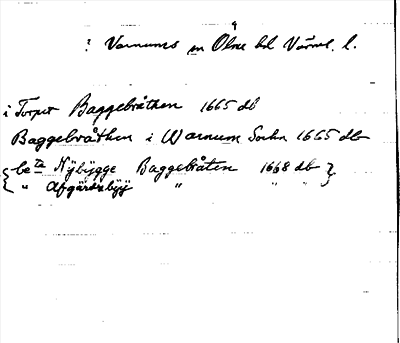 : Varnums sn Ölme hd Värml. l.
i Torpet Baggebråthen 1665 db
Baggebråthen i Warnum Sochn 1665 db
{ be^ta Nÿbÿgge Baggebråten 1668 db }
{ " Afgärdzbÿÿ " " " }